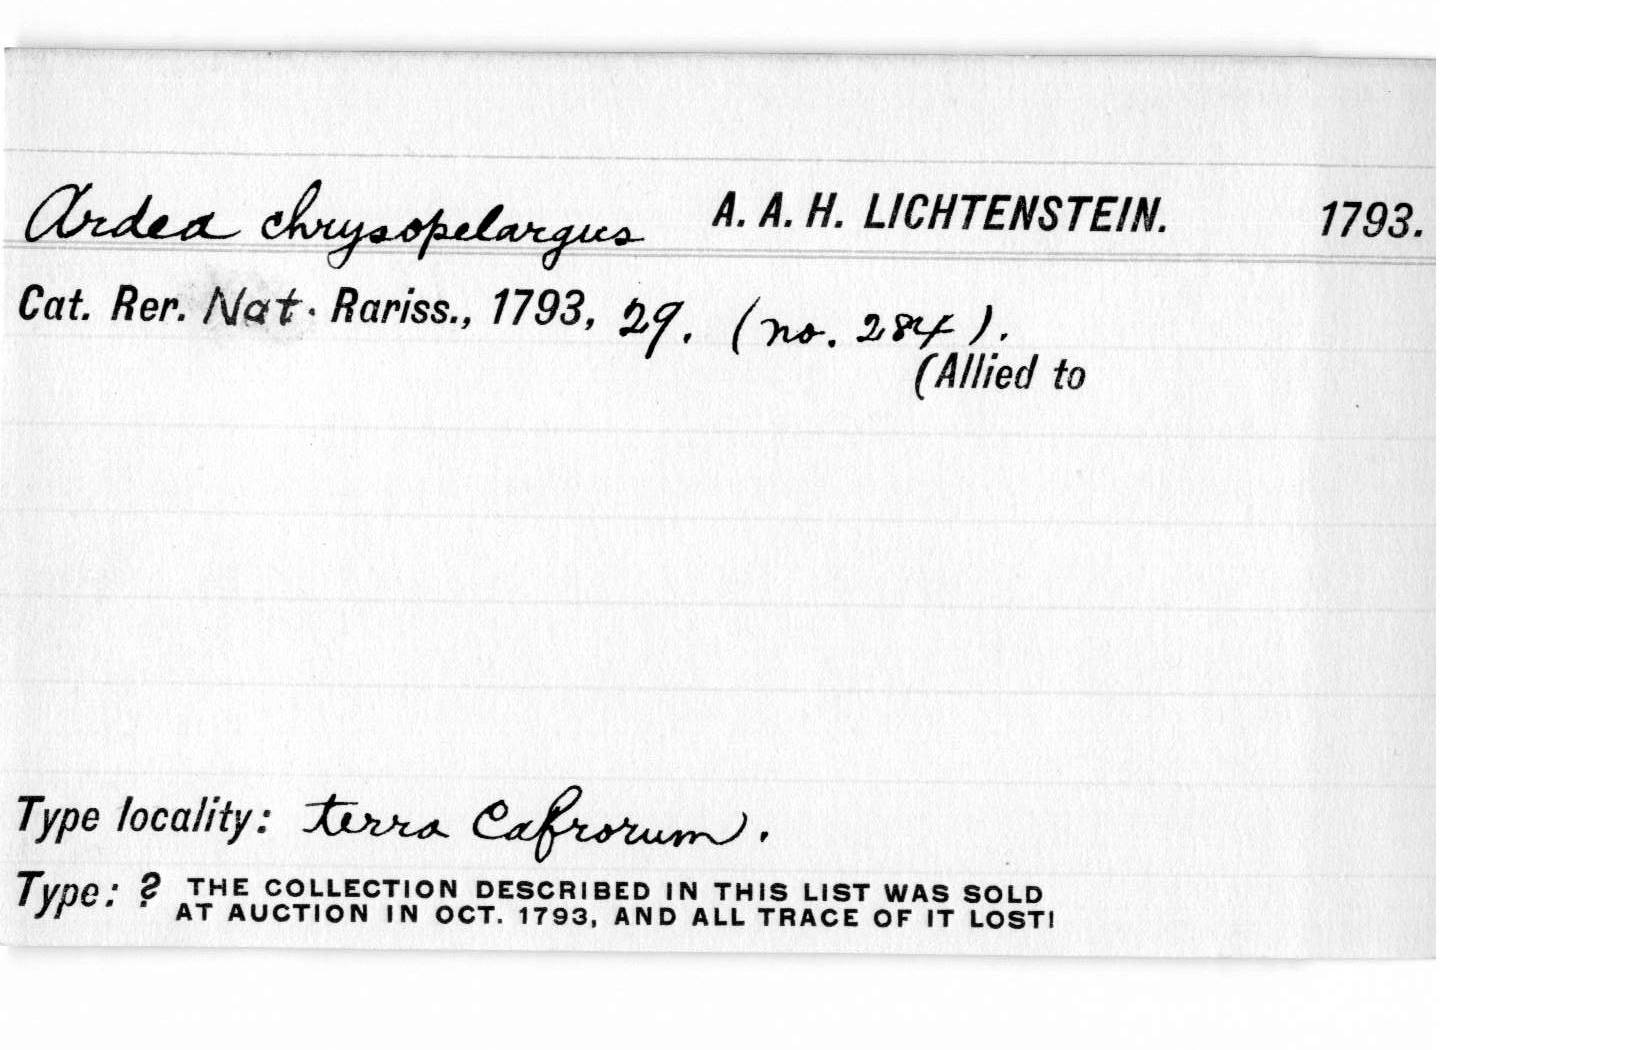 Ardea chrysopelargus A. A. H. LICHTENSTEIN. 1793.
Cat. Rer. Nat. Rariss., 1793, 29. (no. 284).
(Allied to
Type locality: terra Cafrorum.
Type: ? THE COLLECTION DESCRIBED IN THIS LIST WAS SOLD
AT AUCTION IN OCT. 1793, AND ALL TRACE OF IT LOST!